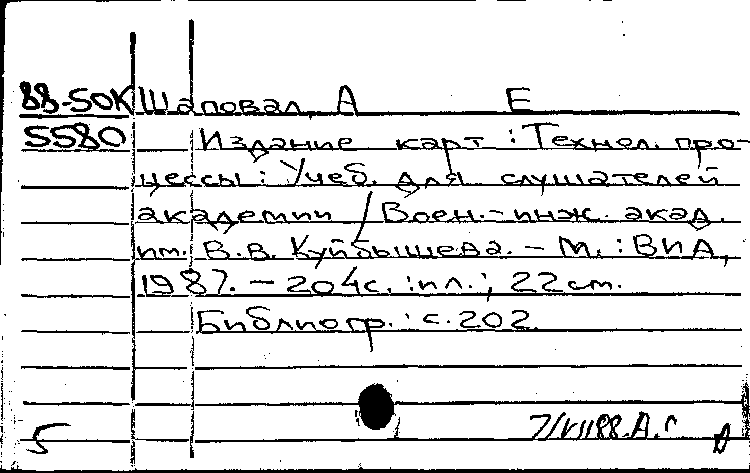 88-50К Шаповал, А Е
5580 Издание карт : Технол. про-
цессы : Учеб. для слушателей
академии / Воен.-инж. акад.
им. В.В. Куйбышева. - М. : ВИА,
1987. - 204с. : ил. ; 22 см.
Библиогр. : с. 202.
5